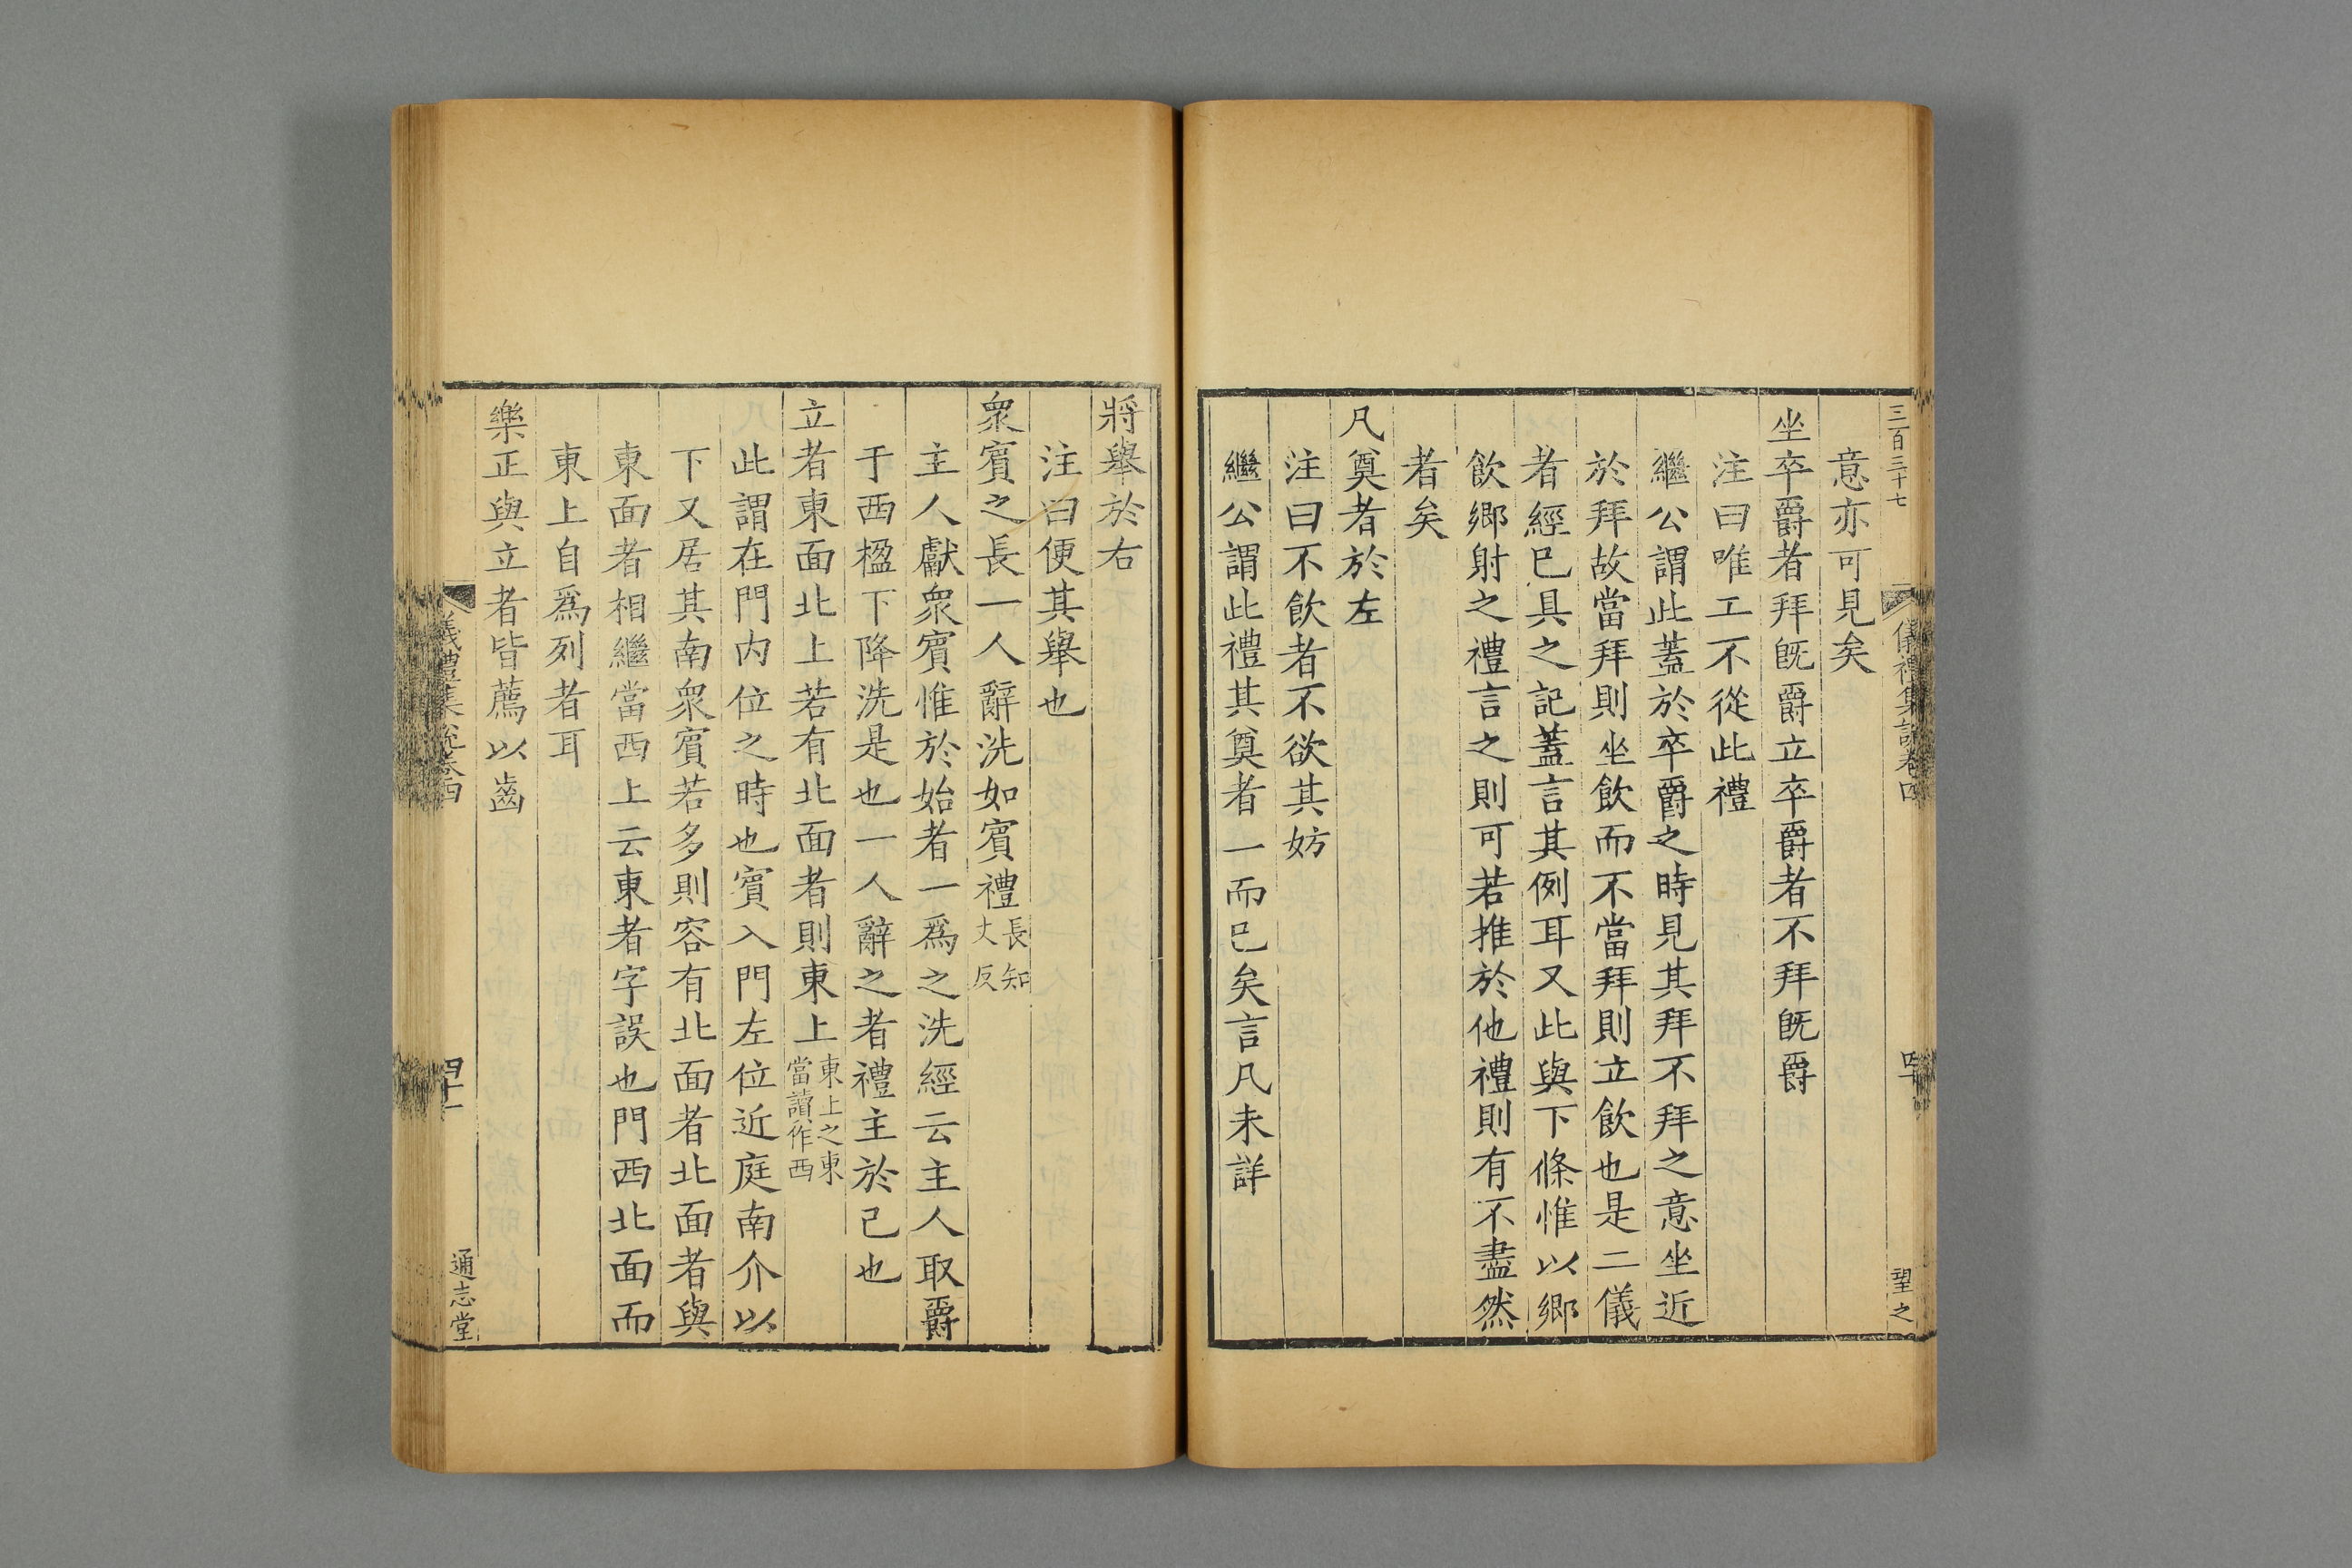 三百三十七
儀禮集說卷四
四十
望之
意亦可見矣
坐卒爵者拜旣爵立卒爵者不拜旣爵
注曰唯工不從此禮
繼公謂此蓋於卒爵之時見其拜不拜之意坐近
於拜故當拜則坐飲而不當拜則立飲也是二儀
者經已具之記蓋言其例耳又此與下條惟以鄉
飲鄉射之禮言之則可若推於他禮則有不盡然
者矣
凡奠者於左
注曰不飲者不欲其妨
繼公謂此禮其奠者一而已矣言凡未詳
將舉於右
注曰便其舉也
衆賓之長一人辭洗如賓禮長知丈反
主人獻衆賓惟於始者一爲之洗經云主人取爵
于西楹下降洗是也一人辭之者禮主於己也
立者東面北上若有北面者則東上東上之東當讀作西
此謂在門内位之時也賓入門左位近庭南介以
下又居其南衆賓若多則容有北面者北面者與
東面者相繼當西上云東者字誤也門西北面而
東上自爲列者耳
樂正與立者皆薦以齒
儀禮集說卷四
四十一
通志堂